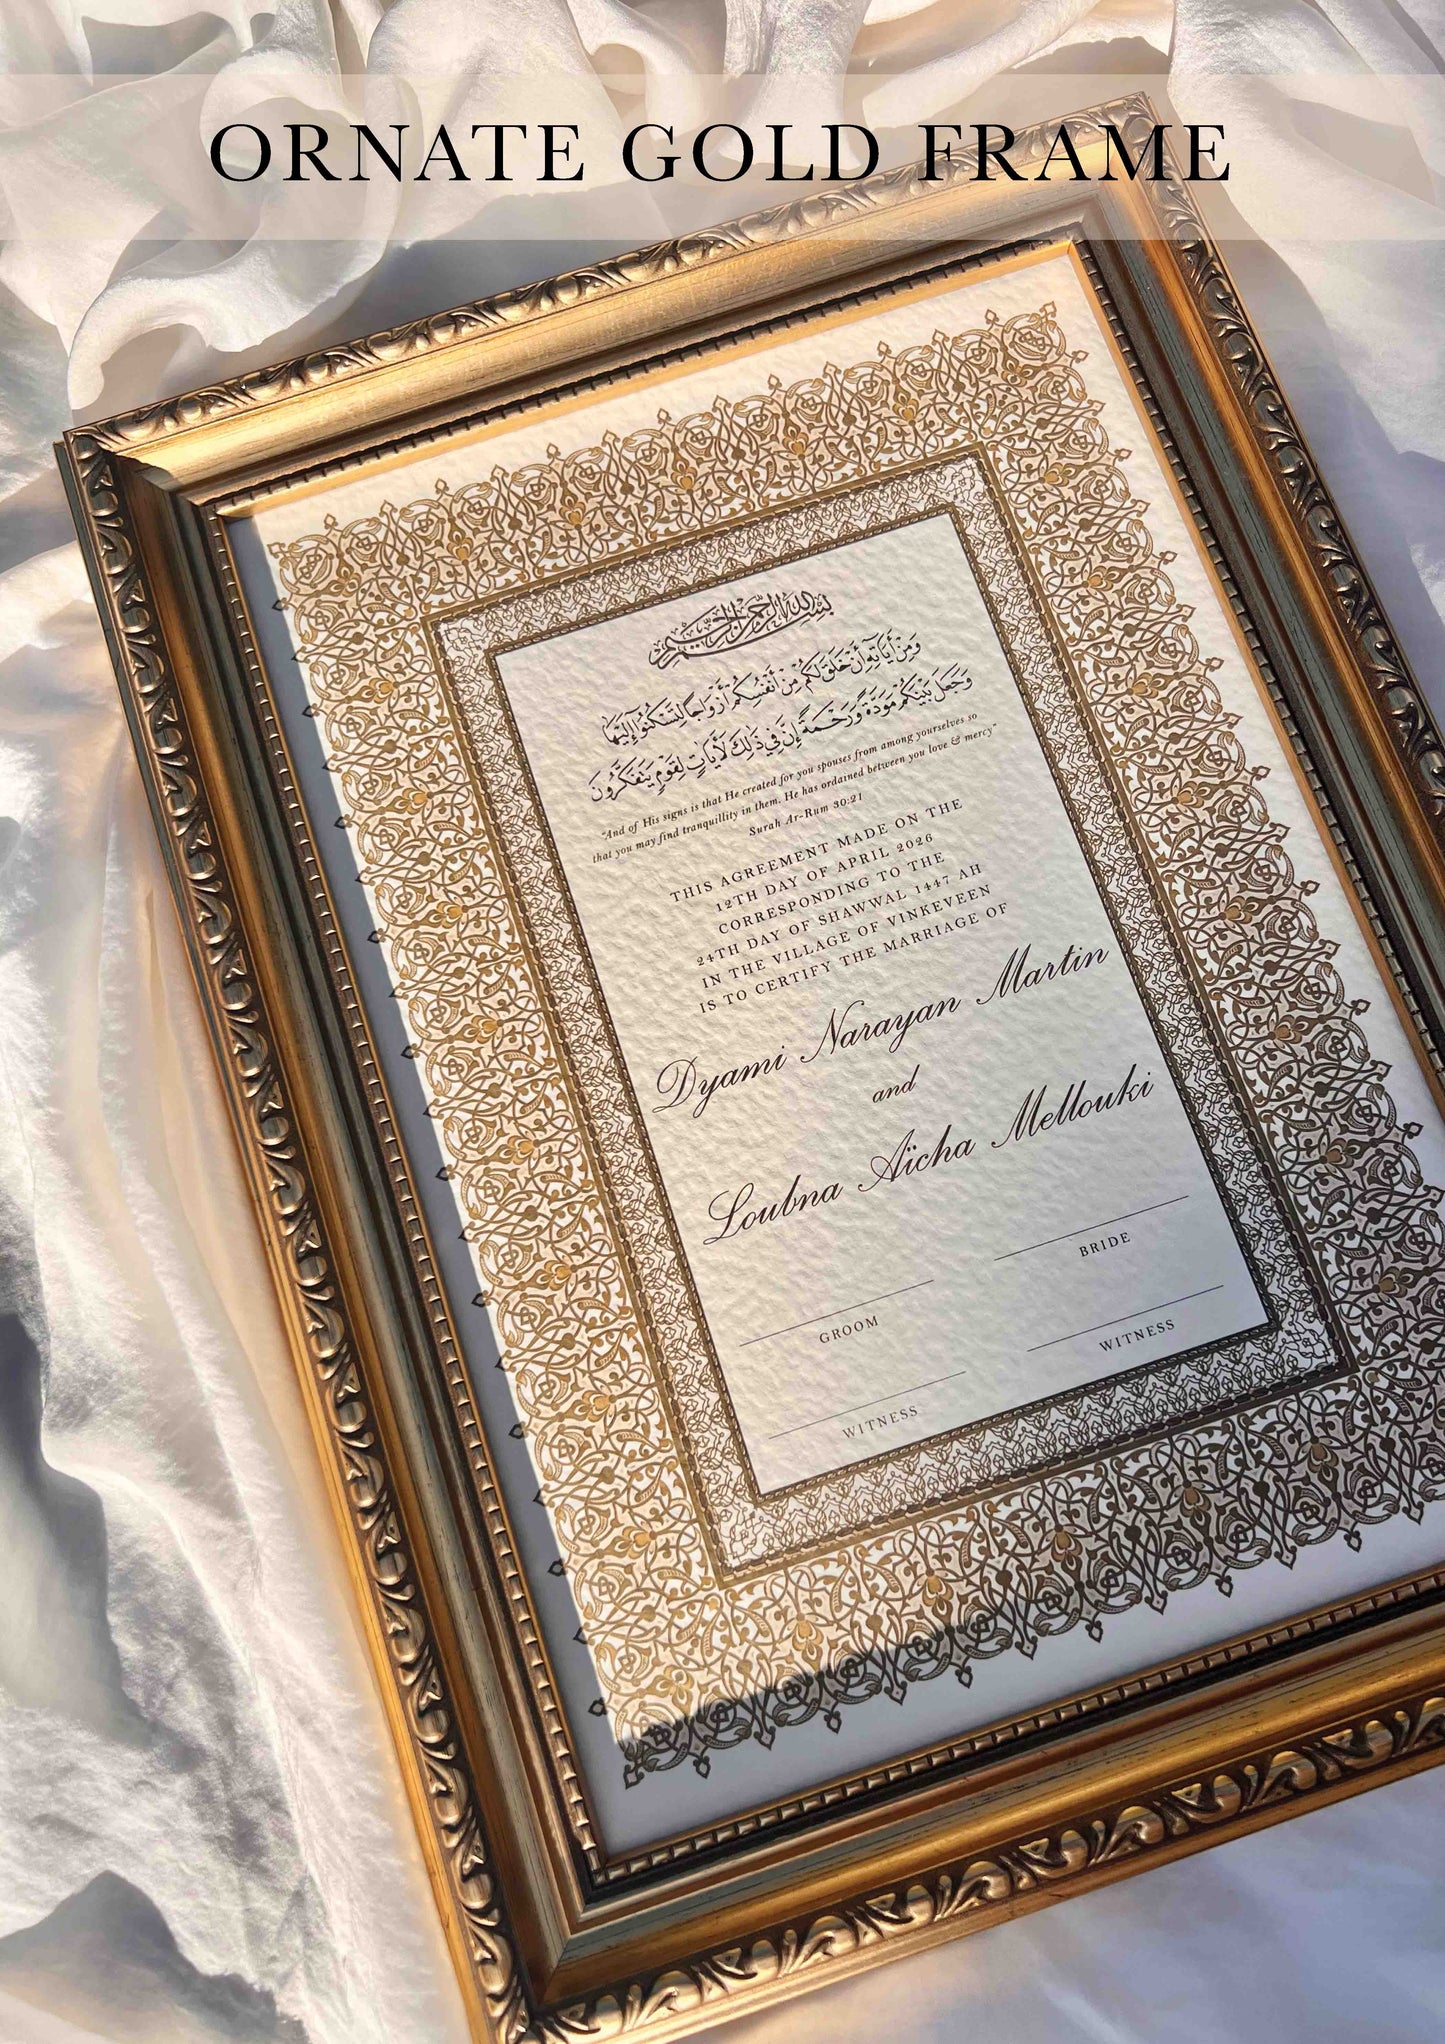 ORNATE GOLD FRAME
بسم الله الرحمن الرحيم
وَمِنْ آيَاتِهِ أَنْ خَلَقَ لَكُم مِّنْ أَنْفُسِكُمْ أَزْوَاجًا لِتَسْكُنُوا إِلَيْهَا
وَجَعَلَ بَيْنَكُمْ مَوَدَّةً وَرَحْمَةً إِنَّ فِي ذَلِكَ لَآيَاتٍ لِقَوْمٍ يَتَفَكَّرُونَ
"And of His signs is that He created for you spouses from among yourselves so
that you may find tranquillity in them. He has ordained between you love & mercy"
Surah Ar-Rum 30:21
THIS AGREEMENT MADE ON THE
12TH DAY OF APRIL 2026
CORRESPONDING TO THE
24TH DAY OF SHAWWAL 1447 AH
IN THE VILLAGE OF VINKEVEEN
IS TO CERTIFY THE MARRIAGE OF
Dyami Narayan Martin
and
Loubna Aïcha Mellouki
GROOM
BRIDE
WITNESS
WITNESS